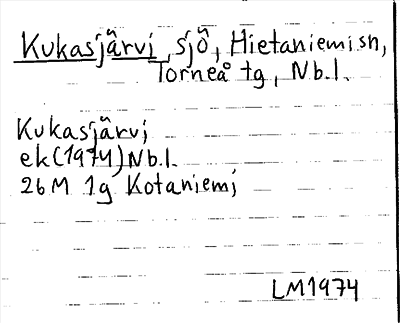 Kukasjärvi, sjö, Hietaniemi sn,
Torneå tg, Nb.l.
Kukasjärvi
ek(1974)Nb.l.
26M 1g Kotaniemi
LM1974